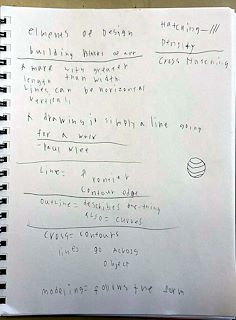 elements of Design
building blocks of art
A mark with greater
length than width.
Lines can be horizontal
vertical
A drawing is simply a line going
for a walk
-Paul Klee
Line=
contour edge
outline= describes the thing
also = curves
cross = contours
lines go across
object
modeling= follows the form
Hatching-///
Density
Cross Hatching